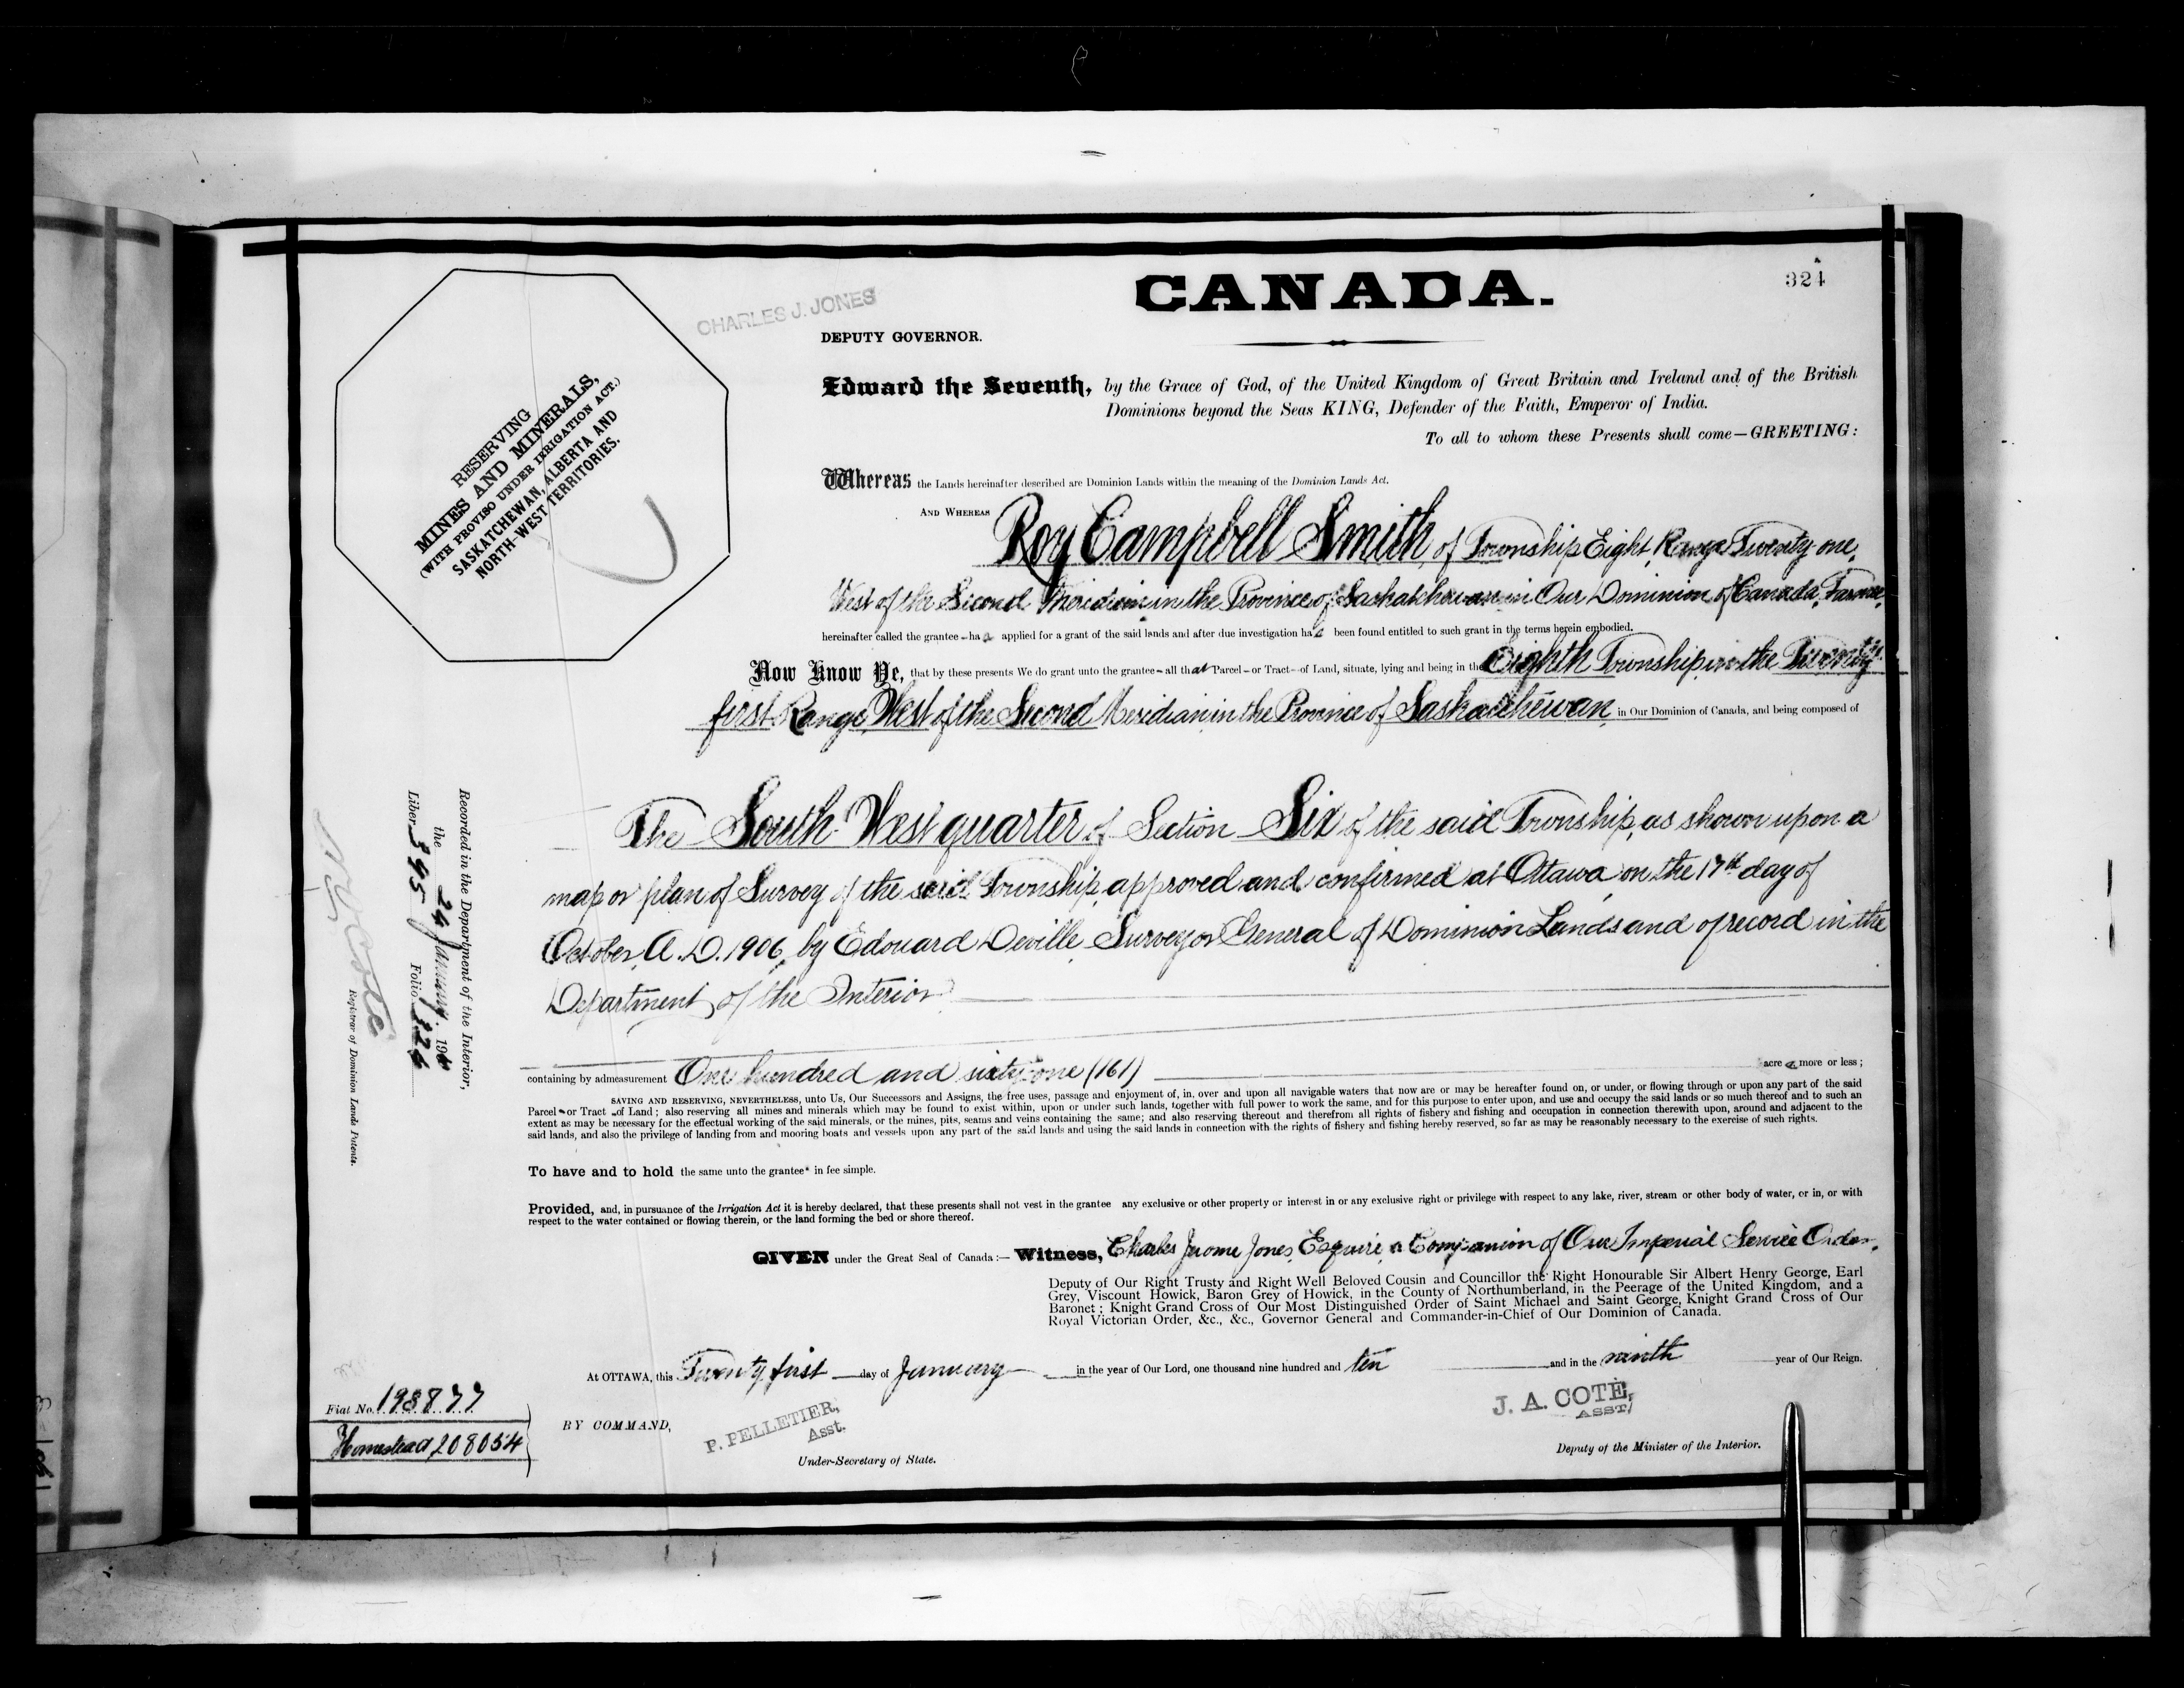 324
CANADA.
CHARLES J. JONES
DEPUTY GOVERNOR.
RESERVING
MINES AND MINERALS,
(WITH PROVISO UNDER IRRIGATION ACT.)
SASKATCHEWAN, ALBERTA AND
NORTH-WEST TERRITORIES.
Edward the Seventh, by the Grace of God, of the United Kingdom of Great Britain and Ireland and of the British
Dominions beyond the Seas KING, Defender of the Faith, Emperor of India.
To all to whom these Presents shall come—GREETING:
Whereas the Lands hereinafter described are Dominion Lands within the meaning of the Dominion Lands Act.
AND WHEREAS Roy Campbell Smith, of Township Eight, Range Twenty-one,
West of the Second Meridian in the Province of Saskatchewan in Our Dominion of Canada, Farmer,
hereinafter called the grantee – has applied for a grant of the said lands and after due investigation has been found entitled to such grant in the terms herein embodied.
Now Know Ye, that by these presents We do grant unto the grantee – all that Parcel – or Tract – of Land, situate, lying and being in the Eighth Township, in the Twenty
first Range, West of the Second Meridian in the Province of Saskatchewan, in Our Dominion of Canada, and being composed of
The South West quarter of Section Six of the said Township, as shown upon a
map or plan of Survey of the said Township, approved and confirmed at Ottawa, on the 17th day of
October, A. D. 1906, by Edouard Deville, Surveyor General of Dominion Lands and of record in the
Department of the Interior
containing by admeasurement One hundred and sixty-one (161) acres more or less;
SAVING AND RESERVING, NEVERTHELESS, unto Us, Our Successors and Assigns, the free uses, passage and enjoyment of, in, over and upon all navigable waters that now are or may be hereafter found on, or under, or flowing through or upon any part of the said
Parcel – or Tract – of Land; also reserving all mines and minerals which may be found to exist within, upon or under such lands, together with full power to work the same, and for this purpose to enter upon, and use and occupy the said lands or so much thereof and to such an
extent as may be necessary for the effectual working of the said minerals, or the mines, pits, seams and veins containing the same; and also reserving thereout and therefrom all rights of fishery and fishing and occupation in connection therewith upon, around and adjacent to the
said lands, and also the privilege of landing from and mooring boats and vessels upon any part of the said lands and using the said lands in connection with the rights of fishery and fishing hereby reserved, so far as may be reasonably necessary to the exercise of such rights.
To have and to hold the same unto the grantee in fee simple.
Provided, and, in pursuance of the Irrigation Act it is hereby declared, that these presents shall not vest in the grantee any exclusive or other property or interest in or any exclusive right or privilege with respect to any lake, river, stream or other body of water, or in, or with
respect to the water contained or flowing therein, or the land forming the bed or shore thereof.
GIVEN under the Great Seal of Canada:— Witness, Charles Jerome Jones, Esquire, a Companion of Our Imperial Service Order,
Deputy of Our Right Trusty and Right Well Beloved Cousin and Councillor the Right Honourable Sir Albert Henry George, Earl
Grey, Viscount Howick, Baron Grey of Howick, in the County of Northumberland, in the Peerage of the United Kingdom, and a
Baronet; Knight Grand Cross of Our Most Distinguished Order of Saint Michael and Saint George, Knight Grand Cross of Our
Royal Victorian Order, &c., &c., Governor General and Commander-in-Chief of Our Dominion of Canada.
At OTTAWA, this Twenty first day of January in the year of Our Lord, one thousand nine hundred and ten and in the ninth year of Our Reign.
BY COMMAND,
P. PELLETIER,
Asst.
Under-Secretary of State.
J. A. COTÉ,
ASST.
Deputy of the Minister of the Interior.
Fiat No. 198877
Homestead 208054
Recorded in the Department of the Interior,
the 24 January. 19
Liber 395 Folio 324
N. O. Coté
Registrar of Dominion Lands Patents.